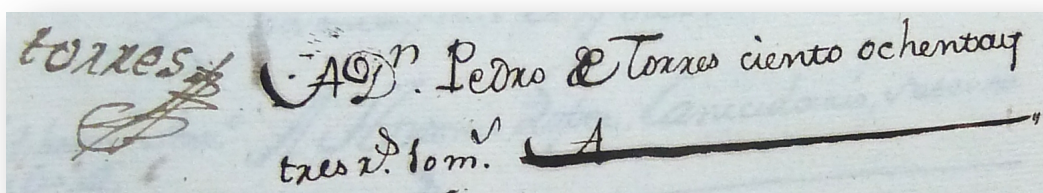 torres
A Dn. Pedro de Torres ciento ochentay
tres rs. lo m.